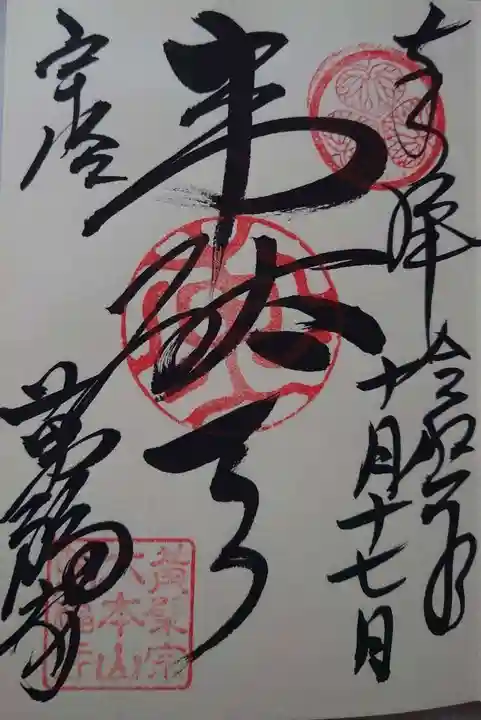 奉拝
令和
十月十七日
韋駄天
宇治
萬福寺
黄檗宗
大本山
萬福寺